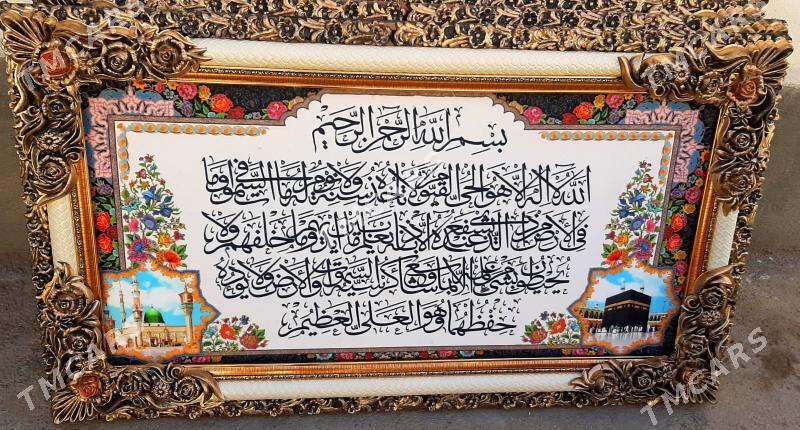 بسم الله الرحمن الرحيم
الله لا إله إلا هو الحي القيوم لا تأخذه سنة ولا نوم له ما في السموات وما
في الأرض من ذا الذي يشفع عنده إلا بإذنه يعلم ما بين أيديهم وما خلفهم ولا
يحيطون بشيء من علمه إلا بما شاء وسع كرسيه السموات والأرض ولا يؤده
حفظهما وهو العلي العظيم
TMCARS
TMCARS
TMCARS
TMCARS
TMCARS